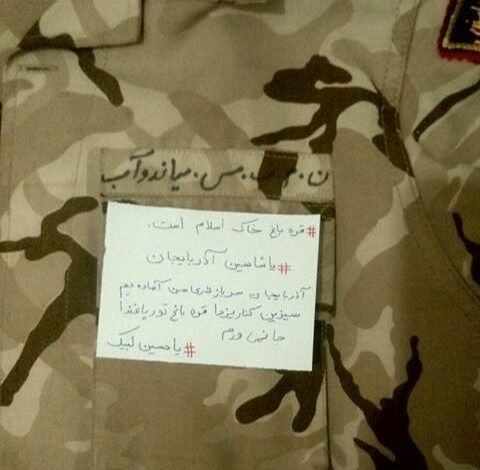 ن.م.ب.س.میاندوآب
#قره باغ خاک اسلام است.
#یاشاسین آذربایجان
آذربایجان سربازلاری من آماده یم
سیزین کناریزدا قره باغ توپراغندا
جانمی ورم
#یاحسین لبیک